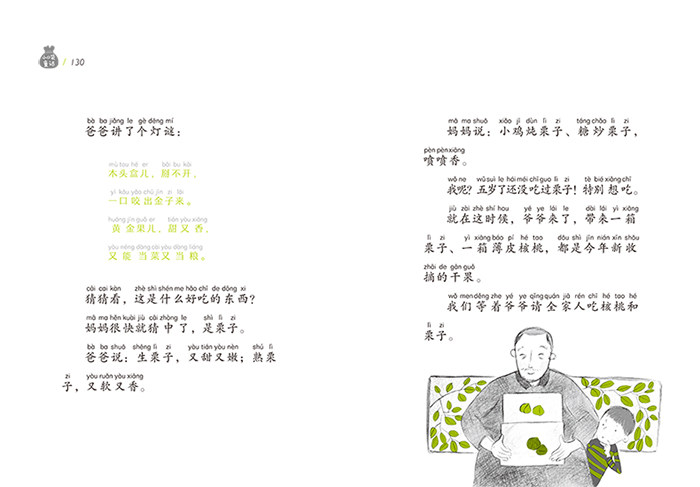 / 130
bà ba jiǎng le gè dēng mí
爸爸讲了个灯谜：
mù tou hé er bāi bu kāi
木头盒儿，掰不开，
yì kǒu yǎo chū jīn zi lái
一口咬出金子来。
huáng jīn guǒ er tián yòu xiāng
黄金果儿，甜又香，
yòu néng dāng cài yòu dāng liáng
又能当菜又当粮。
cāi cai kàn zhè shì shén me hǎo chī de dōng xi
猜猜看，这是什么好吃的东西？
mā ma hěn kuài jiù cāi zhòng le shì lì zi
妈妈很快就猜中了，是栗子。
bà ba shuō shēng lì zi yòu tián yòu nèn shú lì
爸爸说：生栗子，又甜又嫩；熟栗
zi yòu ruǎn yòu xiāng
子，又软又香。
mā ma shuō xiǎo jī dùn lì zi táng chǎo lì zi
妈妈说：小鸡炖栗子、糖炒栗子，
pèn pèn xiāng
喷喷香。
wǒ ne wǔ suì le hái méi chī guo lì zi tè bié xiǎng chī
我呢？五岁了还没吃过栗子！特别想吃。
jiù zài zhè shí hou yé ye lái le dài lái yì xiāng
就在这时候，爷爷来了，带来一箱
lì zi yì xiāng báo pí hé tao dōu shì jīn nián xīn shōu
栗子、一箱薄皮核桃，都是今年新收
zhāi de gān guǒ
摘的干果。
wǒ men děng zhe yé ye qǐng quán jiā rén chī hé tao hé
我们等着爷爷请全家人吃核桃和
lì zi
栗子。